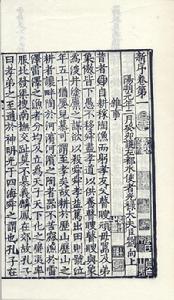 新序卷第一
陽朔元年二月癸卯護左都水使者光祿大夫臣劉向上
雜事
昔者舜自耕稼陶漁而躬孝友父瞽瞍頑母嚚及弟
象傲皆下愚不移舜盡孝道以供養瞽瞍瞽瞍與象
為浚井塗廩之謀欲以殺舜舜孝益篤出田則號泣
年五十猶嬰兒慕可謂至孝矣故耕於歷山歷山之
耕者讓畔陶於河濱河濱之陶者器不苦窳漁於雷
澤雷澤之漁者分均及立為天子天下化之蠻夷率
服北發渠搜南撫交阯莫不慕義麟鳳在郊故孔子
曰孝弟之至通於神明光于四海舜之謂也孔子在